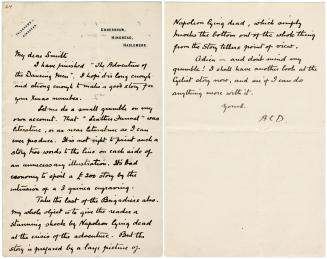 UNDERSHAW,
HINDHEAD,
HASLEMERE.
My dear Smith
I have finished "The Adventure of
the Dancing Men". I hope it is long enough
and strong enough to make a good story for
your Xmas number.
Let me do a small grumble on my
own account. That "Leather Funnel" was
literature, or as near literature as I can
ever produce. It is not right to print such a
story two words to the line on each side of
an unnecessary illustration. It's bad
economy to spoil a £200 story by the
intrusion of a 3 guinea engraving.
Take the last of the Brigadiers also.
My whole object is to give the reader a
stunning shock by Napoleon lying dead
at the crisis of the adventure. But the
story is prefaced by a large picture of
Napoleon lying dead, which simply
knocks the bottom out of the whole thing
from the Story tellers point of view.
Adieu – and dont mind my
grumble! I shall have another look at the
Cyclist story now, and see if I can do
anything more with it.
Yours.
A C D.